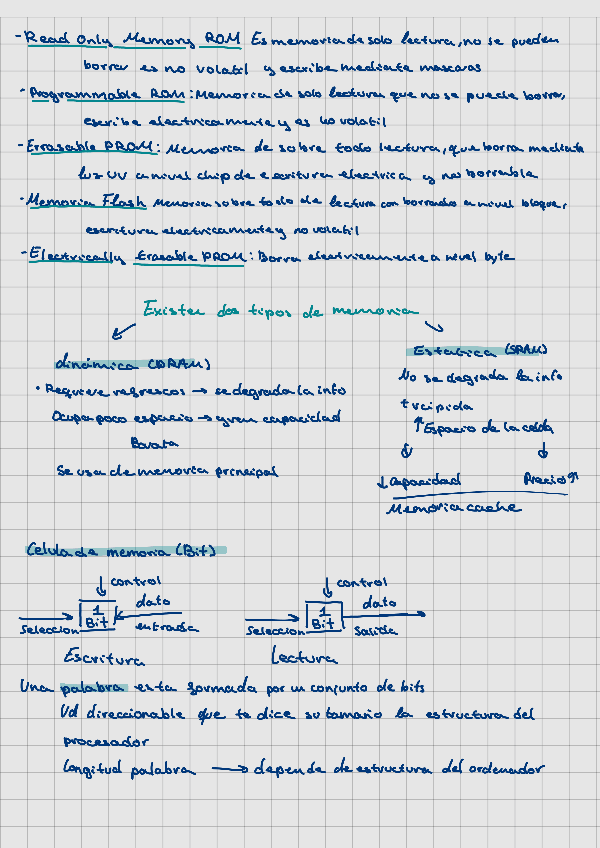 - Read Only Memory ROM Es memoria de solo lectura, no se pueden
borrar es no volatil y escribe mediante mascaras
- Programmable ROM: Memoria de solo lectura que no se puede borrar,
escribe electricamente y es no volatil
- Errasable PROM: Memoria de sobre todo lectura, que borra mediante
luz UV a nivel chip de escritura electrica y no borrable
- Memoria Flash Memoria sobre todo de lectura con borrado a nivel bloque,
escritura electricamente y no volatil
- Electrically Erasable PROM: Borra electricamente a nivel byte
Existen dos tipos de memoria
dinámica (DRAM)
• Requiere refrescos → se degrada la info
Ocupa poco espacio → gran capacidad
Barata
Se usa de memoria principal
Estatica (SRAM)
No se degrada la info
+ rapida
↑ Espacio de la celda
↓ Capacidad Precio ↑
Memoria cache
Celula de memoria (Bit)
control
seleccion
1 Bit
dato
entrada
Escritura
control
seleccion
1 Bit
dato
salida
Lectura
Una palabra esta formada por un conjunto de bits
Ud direccionable que te dice su tamaño la estructura del
procesador
longitud palabra → depende de estructura del ordenador